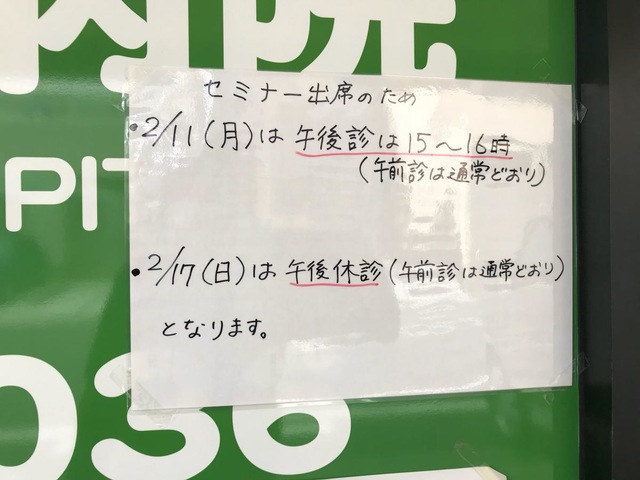 院
セミナー出席のため
・2/11(月)は 午後診は15～16時
(午前診は通常どおり)
PIT
・2/17(日)は 午後休診(午前診は通常どおり)
となります。
036